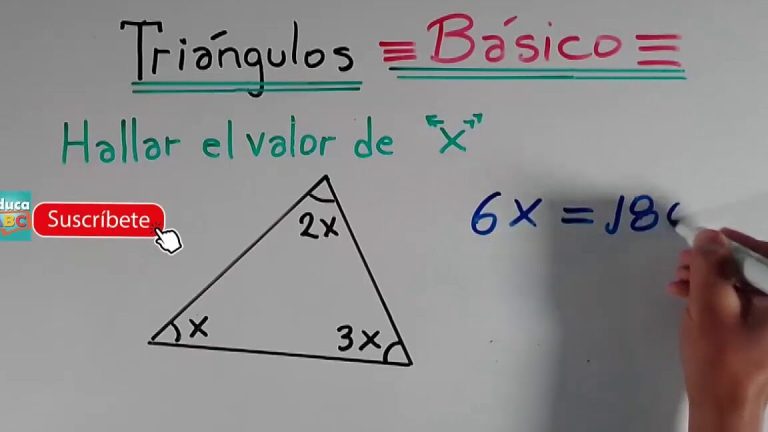 Triángulos ≡ Básico ≡
Hallar el valor de "x"
educa
ABC
Suscríbete
6x = 18
2x
x
3x